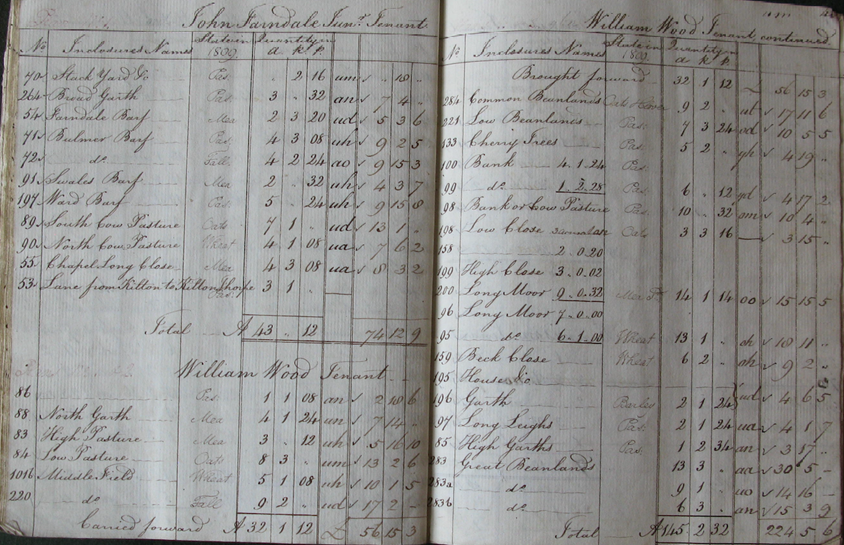 John Farndale Junr. Tenant
No Inclosures Names State in 1809 Quantity in a R P
70 Stack Yard &c Pas. .. 2 16 um 18 ..
264 Broad Garth Pas. 3 .. 32 an 7 4 ..
54 Farndale Barf Mea 2 3 20 ud 5 3 6
71 Bulmer Barf Pas. 4 3 08 uh 9 2 5
72 do Fall 4 2 24 ao 9 15 3
91 Swales Barf Mea 2 .. 32 ah 4 3 7
197 Ward Barf Pas. 5 .. 24 uh 9 15 8
89 South Cow Pasture Oats 7 1 .. ud 13 1 ..
90 North Cow Pasture Wheat 4 1 08 ua 7 6 2
55 Chapel Long Close Mea 4 3 08 ua 8 3 2
53 Lane from Kilton to Kilton Thorpe Pas. 3 1 ..
Total A 43 .. 12 74 12 9
William Wood Tenant
86 Pas. 1 1 08 an 2 18 6
88 North Garth Mea 4 1 24 un 7 14 ..
83 High Pasture Mea 3 .. 12 uh 5 16 10
84 Low Pasture Oats 8 3 .. um 13 2 6
1016 Middle Field Wheat 5 1 08 uh 10 1 5
220 do Fall 9 2 .. ud 17 2 ..
Carried forward A 32 1 12 £ 56 15 3
William Wood Tenant continued
No Inclosures Names State in 1809 Quantity in a R P
Brought forward 32 1 12 56 15 3
284 Common Beanlands Oats 9 2 .. ut 17 11 6
221 Low Beanlands Pas. 7 3 24 ud 10 5 5
133 Cherry Trees Pas. 5 2 .. yh 4 19 ..
100 Bank 4.1.24 Pas.
99 do 1.2.28 Pas. 6 .. 12 yd 4 17 2
98 Bank or Cow Pasture Pas. 10 .. 32 om 10 4 ..
198 Low Close Oats 3 3 16 3 15 ..
158 2.0.20
199 High Close 3.0.02
200 Long Moor 9.0.32 14 1 14 oo 15 15 5
96 Long Moor 7.0.00
95 do 6.1.00 Wheat 13 1 .. oh 18 11 ..
159 Beck Close Wheat 6 2 .. ah 9 2 ..
195 House &c
196 Garth 2 1 24 ud 4 6 5
97 Long Leighs Pas. 2 1 24 ua 4 1 7
85 High Garths Pas. 1 2 34 an 3 17 ..
283 Great Beanlands 13 3 .. aa 30 5 ..
283a do 9 1 .. uo 14 16 ..
283b do 6 3 .. an 15 3 9
Total A 145 2 32 224 5 6